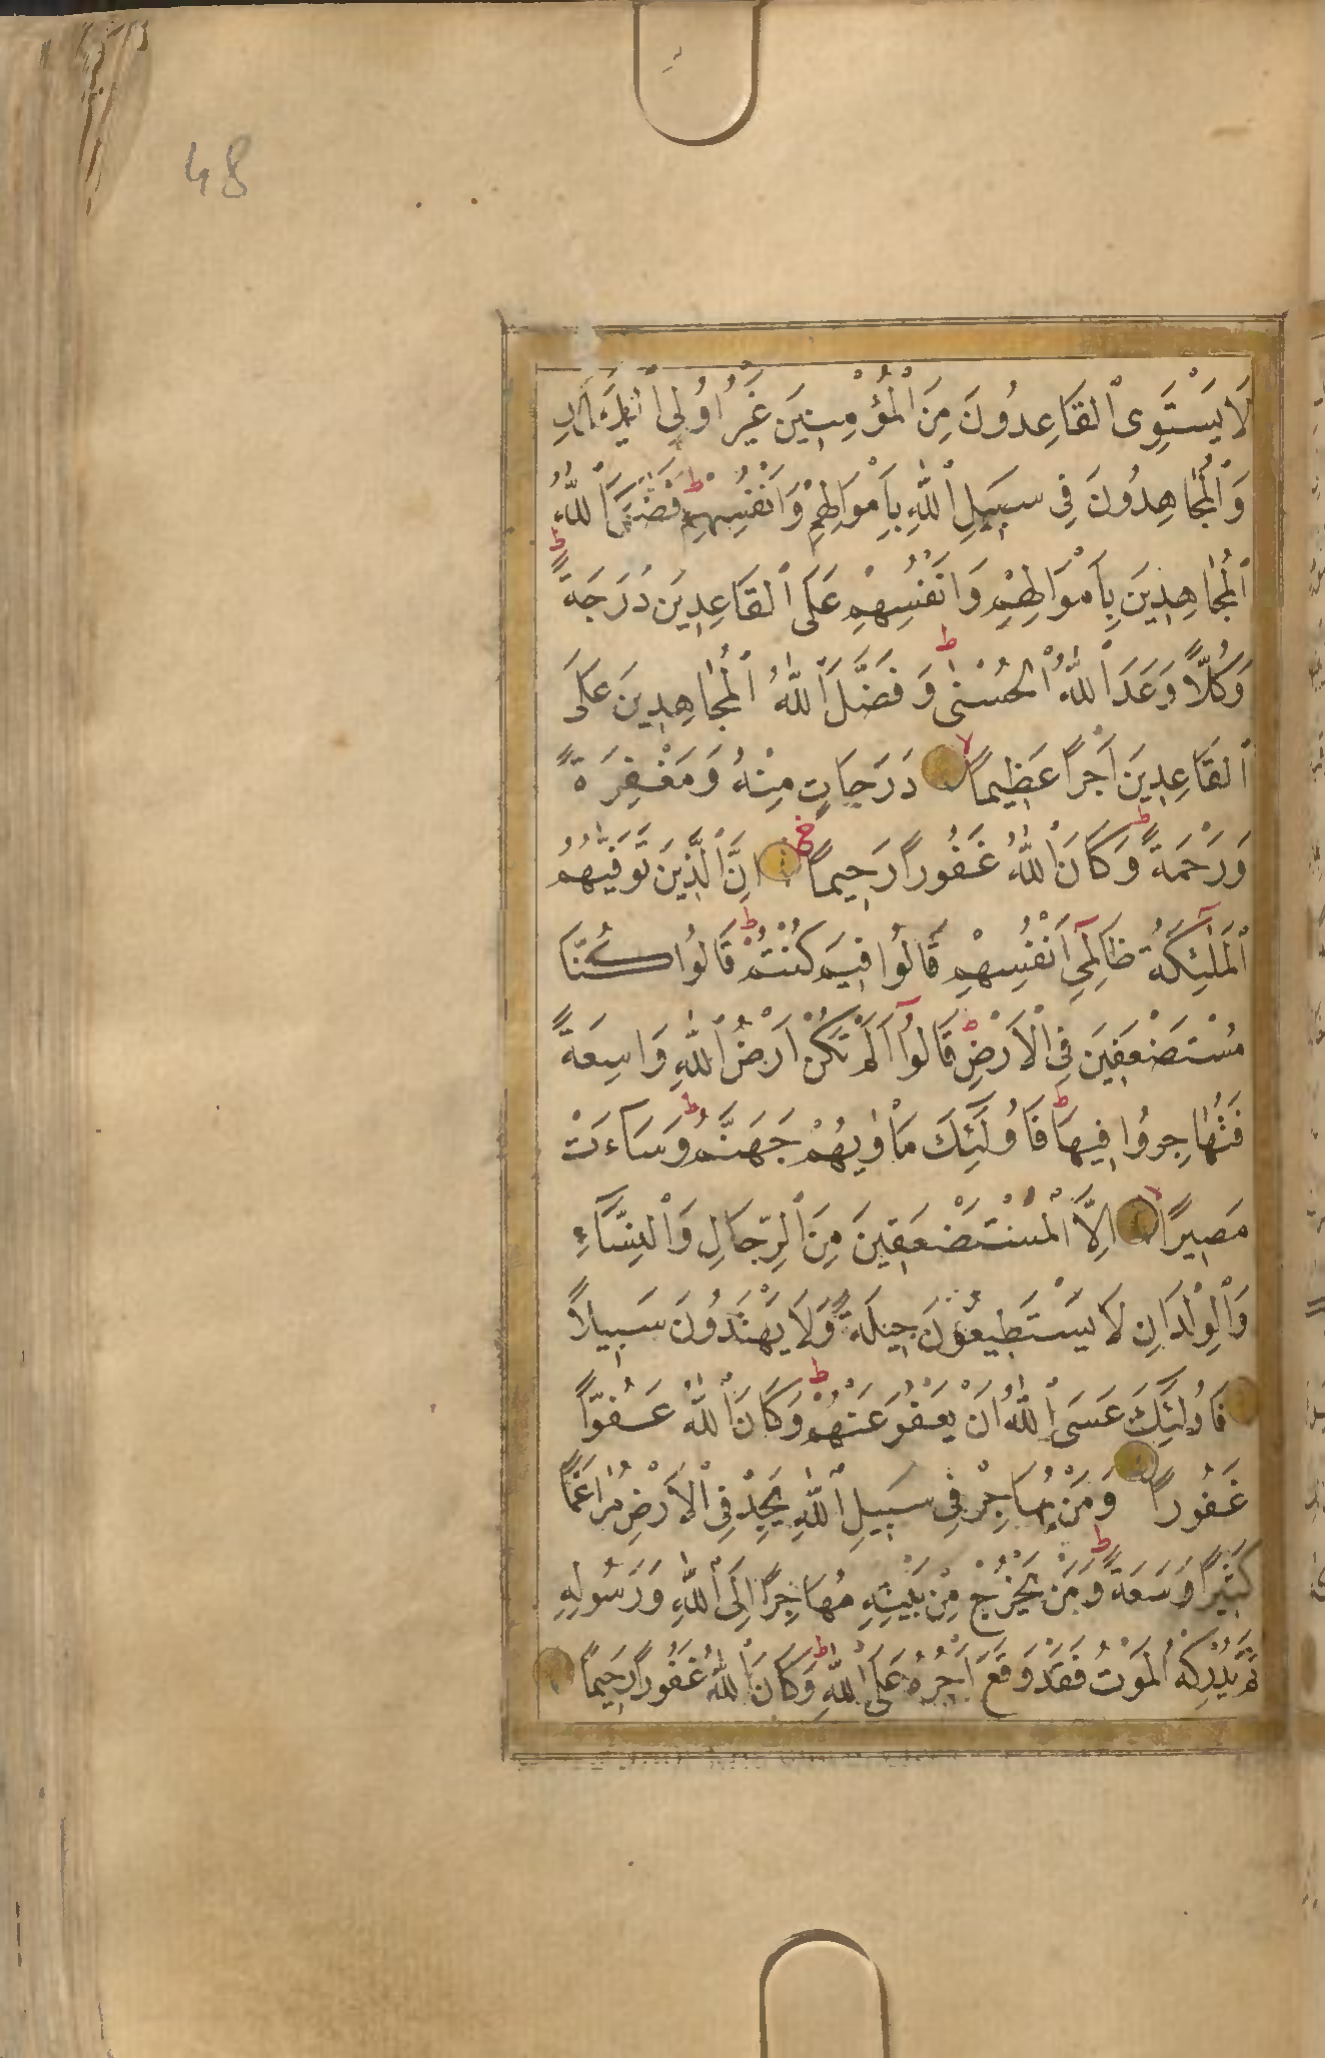 48
لَا يَسْتَوِى ٱلْقَاعِدُونَ مِنَ ٱلْمُؤْمِنِينَ غَيْرُ اُو۬لِي ٱلضَّرَرِ
وَٱلْمُجَاهِدُونَ فِى سَبِيلِ ٱللّٰهِ بِاَمْوَالِهِمْ وَاَنْفُسِهِمْ ط فَضَّلَ ٱللّٰهُ
ٱلْمُجَاهِدِينَ بِاَمْوَالِهِمْ وَاَنْفُسِهِمْ عَلَى ٱلْقَاعِدِينَ دَرَجَةً ط
وَكُلًّا وَعَدَ ٱللّٰهُ ٱلْحُسْنٰى ط وَفَضَّلَ ٱللّٰهُ ٱلْمُجَاهِدِينَ عَلَى
ٱلْقَاعِدِينَ اَجْرًا عَظِيمًا لا دَرَجَاتٍ مِنْهُ وَمَغْفِرَةً
وَرَحْمَةً ط وَكَانَ ٱللّٰهُ غَفُورًا رَحِيمًا اِنَّ ٱلَّذِينَ تَوَفّٰيهُمُ
ٱلْمَلٰٓئِكَةُ ظَالِمِٓي اَنْفُسِهِمْ قَالُوا فِيمَ كُنْتُمْ ط قَالُوا كُنَّا
مُسْتَضْعَفِينَ فِى ٱلْاَرْضِ ط قَالُوٓا اَلَمْ تَكُنْ اَرْضُ ٱللّٰهِ وَاسِعَةً
فَتُهَاجِرُوا فِيهَا ط فَاُولٰٓئِكَ مَاْوٰيهُمْ جَهَنَّمُ ط وَسَاءَتْ
مَصِيرًا لا اِلَّا ٱلْمُسْتَضْعَفِينَ مِنَ ٱلرِّجَالِ وَٱلنِّسَٓاءِ
وَٱلْوِلْدَانِ لَا يَسْتَطِيعُونَ حِيلَةً وَلَا يَهْتَدُونَ سَبِيلًا
فَاُولٰٓئِكَ عَسَى ٱللّٰهُ اَنْ يَعْفُوَ عَنْهُمْ ط وَكَانَ ٱللّٰهُ عَفُوًّا
غَفُورًا وَمَنْ يُهَاجِرْ فِى سَبِيلِ ٱللّٰهِ يَجِدْ فِى ٱلْاَرْضِ مُرَاغَمًا
كَثِيرًا وَسَعَةً ط وَمَنْ يَخْرُجْ مِنْ بَيْتِهِ مُهَاجِرًا اِلَى ٱللّٰهِ وَرَسُولِهِ
ثُمَّ يُدْرِكْهُ ٱلْمَوْتُ فَقَدْ وَقَعَ اَجْرُهُ عَلَى ٱللّٰهِ ط وَكَانَ ٱللّٰهُ غَفُورًا رَحِيمًا